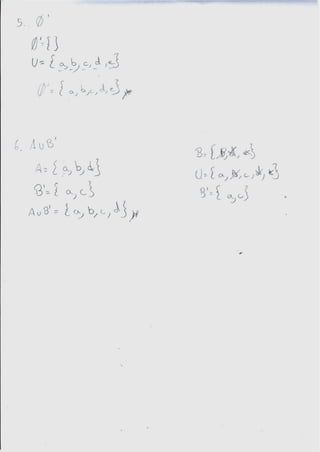 5. Ø'
Ø'={}
U={a,b,c,d,e}
Ø'={a,b,c,d,e}
6. A∪B'
A={a,b,d}
B'={a,c}
A∪B'={a,b,c,d}
B={b,d,e}
U={a,b,c,d,e}
B'={a,c}